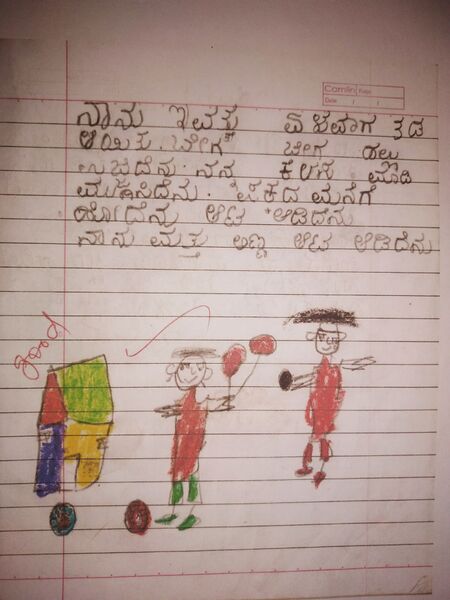 Camlin Page
Date / /
ನಾನು ಇವತ್ತು ಏಳವಾಗ ತಡ
ಆಯಿತು. ಬೇಗ ಬೇಗ ಹಲು
ಉಜಿದೆನು. ನನ ಕೆಲಸ ಮಾಡಿ
ಪಕದ ಮನೆಗೆ
ಹೋದೆನು ಆಟ ಆಡಿದೆನು
ನಾನು ಮತ್ತು ಅಣ್ಣ ಆಟ ಆಡಿದೆನು
good